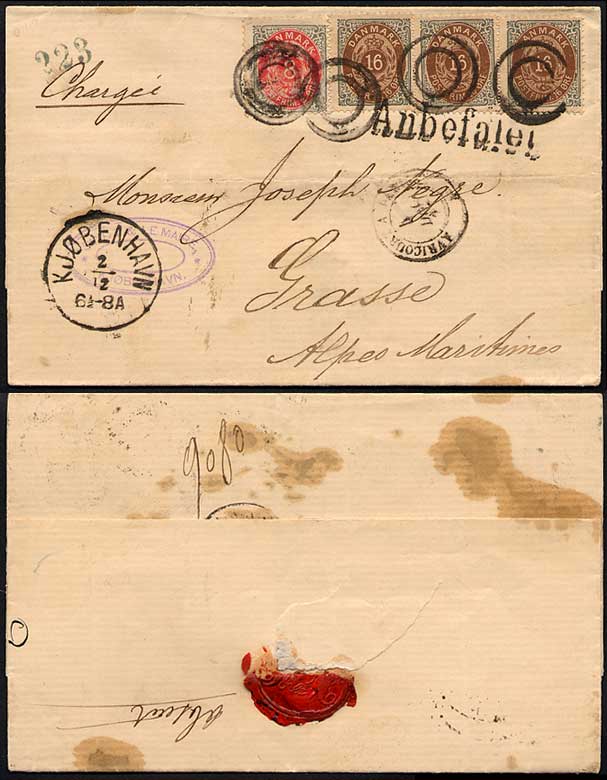 223
DANMARK
8
DANMARK
16
DANMARK
16
DANMARK
16
Chargée
Anbefalet
Monsieur Joseph Nègre.
AVRICOURT
KJØBENHAVN
2
12
6½-8A
Grasse
Alpes Maritimes
9080
absent